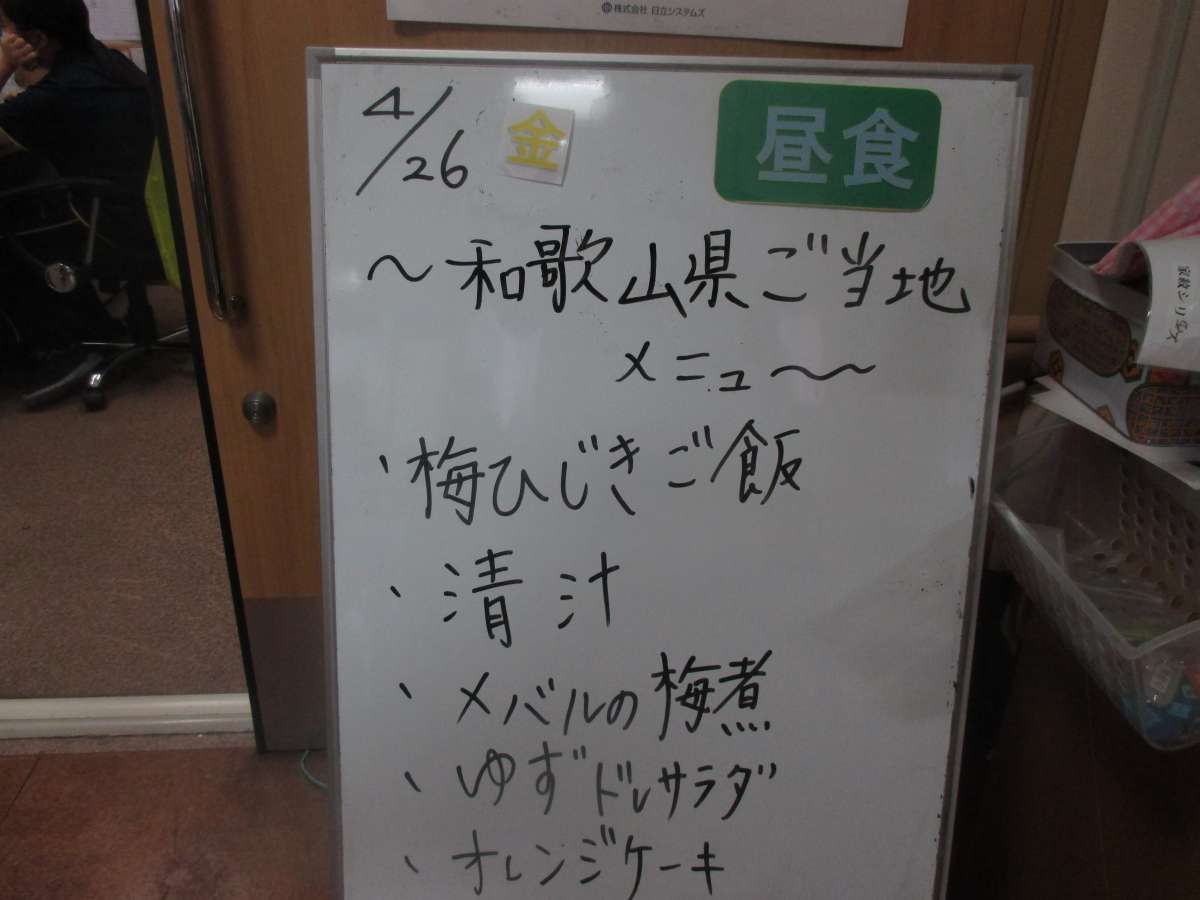 株式会社 日立システムズ
4/26 金 昼食
～和歌山県ご当地
メニュー～
・梅ひじきご飯
・清汁
・メバルの梅煮
・ゆずドレサラダ
・オレンジケーキ